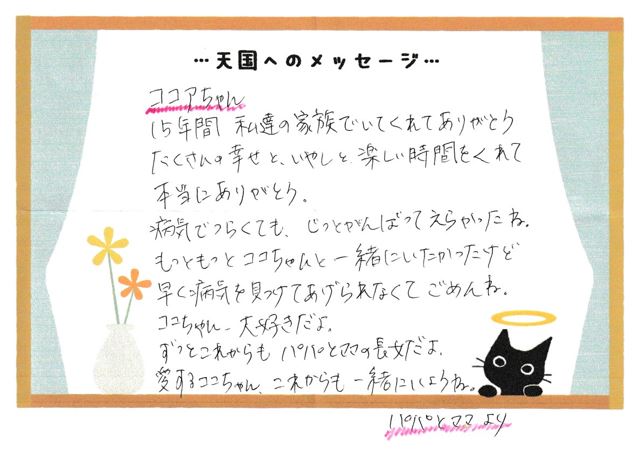 …天国へのメッセージ…
ココアちゃん
15年間 私達の家族でいてくれてありがとう
たくさんの幸せと、いやしと楽しい時間をくれて
本当にありがとう。
病気でつらくても、じっとがんばってえらかったね。
もっともっとココちゃんと一緒にいたかったけど
早く病気を見つけてあげられなくてごめんね。
ココちゃん 大好きだよ。
ずっとこれからも パパとママの長女だよ。
愛するココちゃん、これからも一緒にいようね。
パパとママより